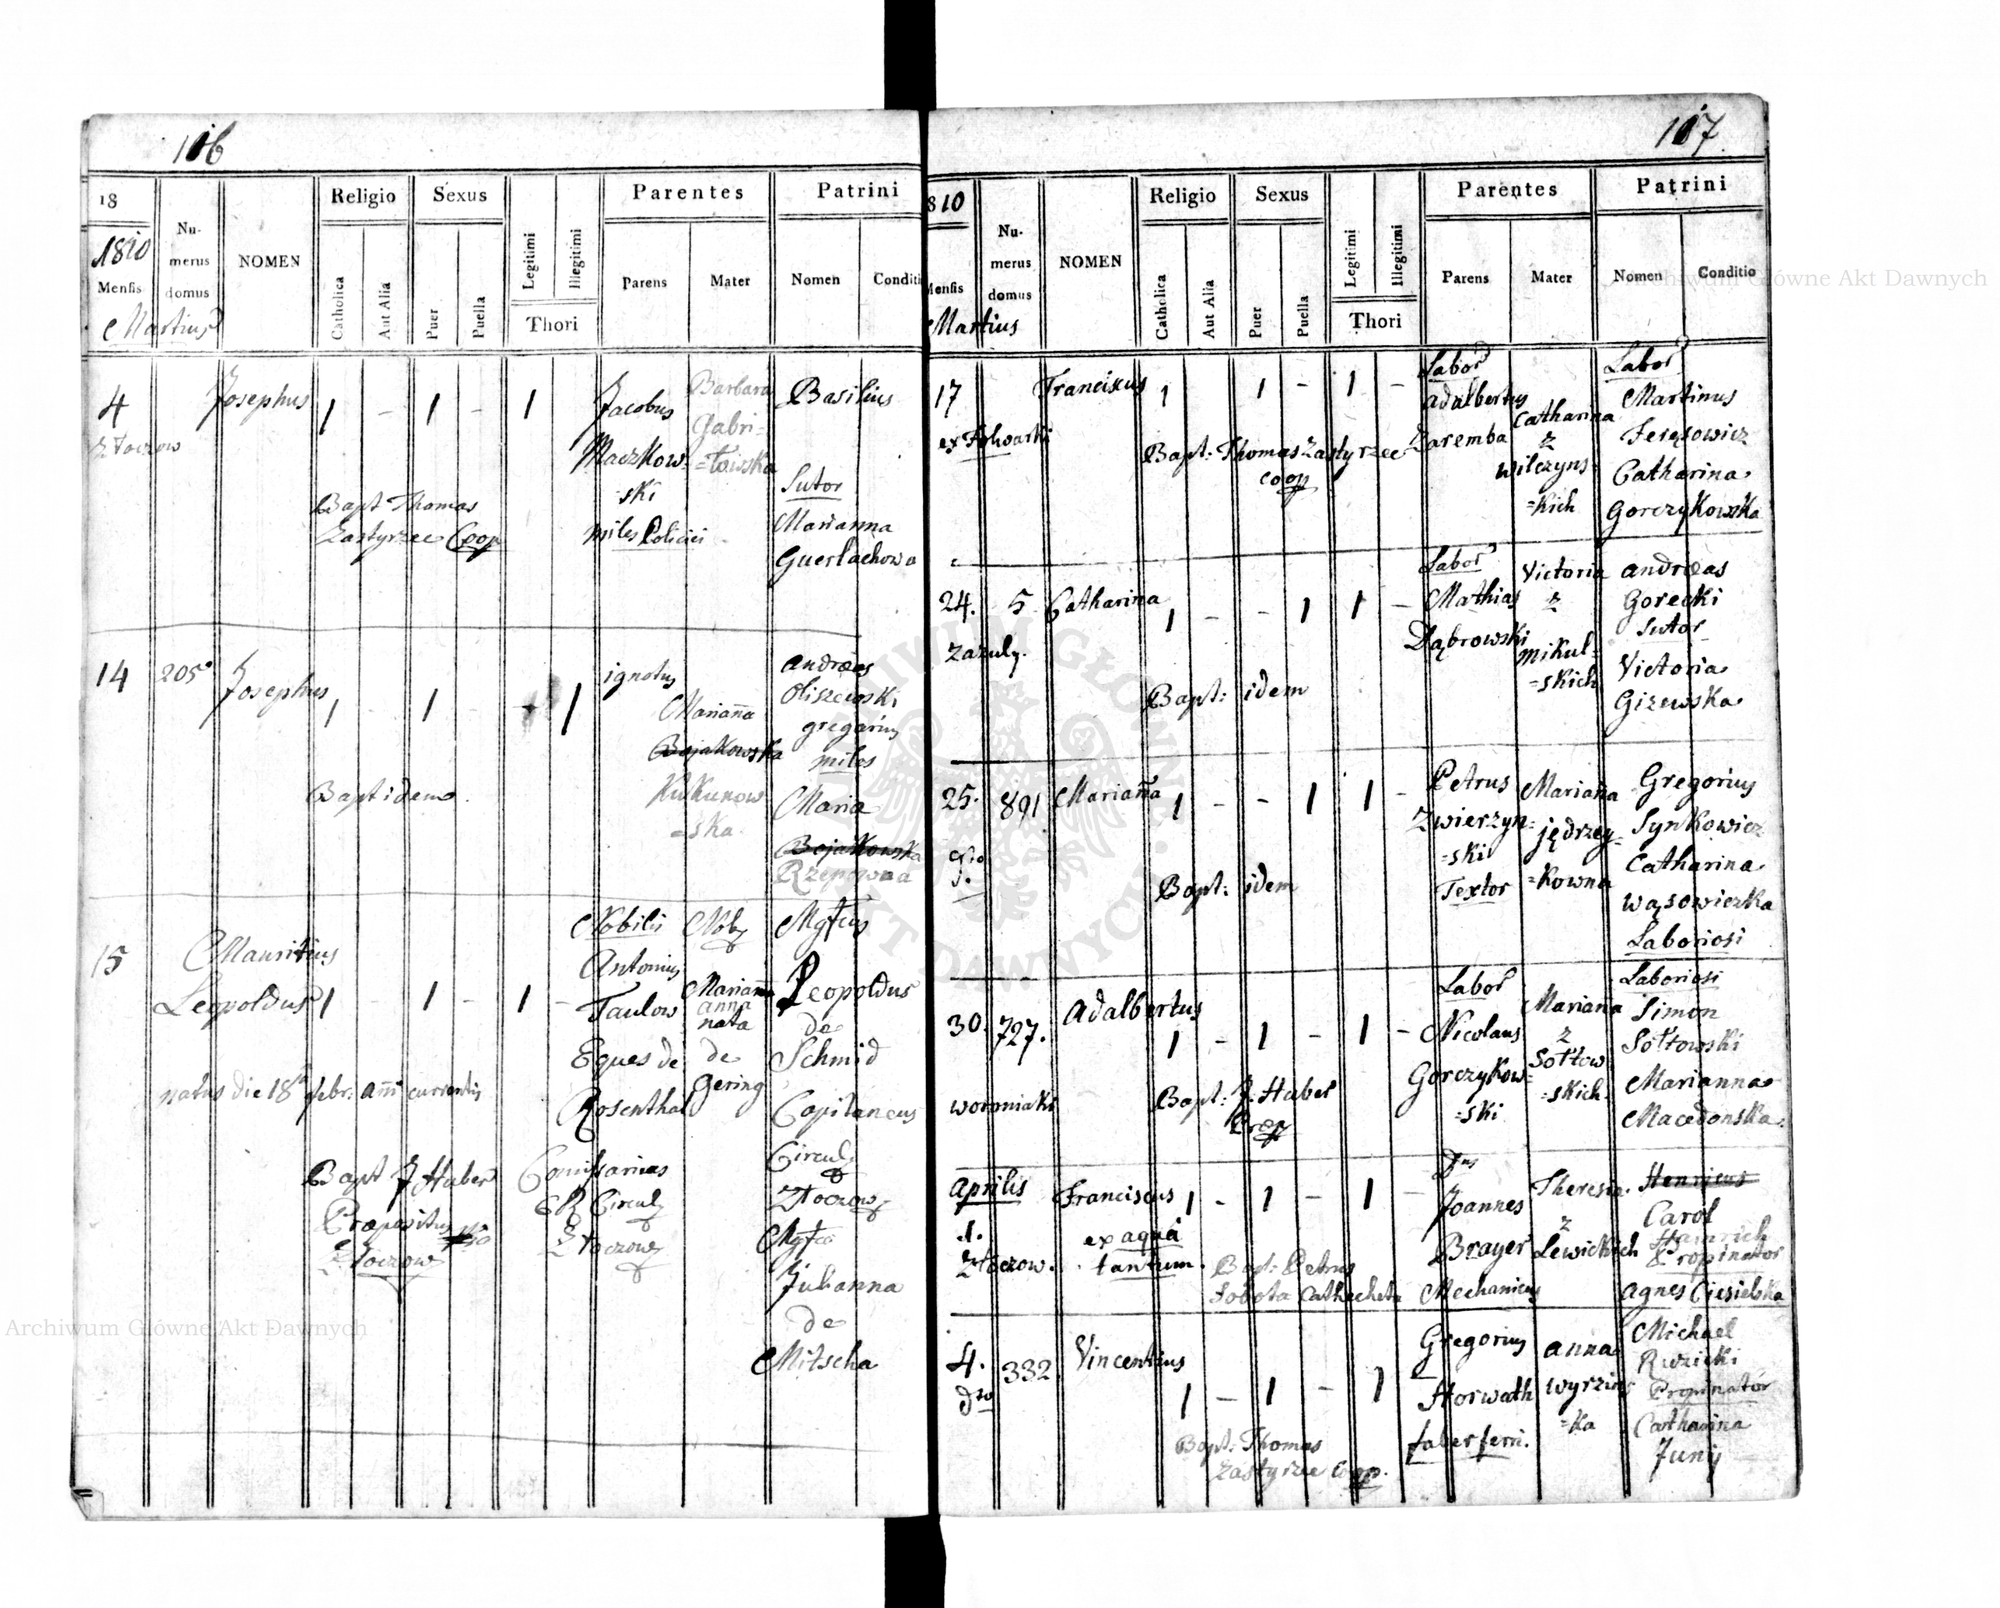 106
18
1810
Mensis
Martius
Numerus domus
NOMEN
Religio
Catholica
Aut Alia
Sexus
Puer
Puella
Legitimi
Illegitimi
Thori
Parentes
Parens
Mater
Patrini
Nomen
Conditi
4
Złoczow
Josephus
1 - 1 - 1
Jacobus
Maczkow-
ski
miles Policiei
Barbara
Gabri-
=łowska
Basilius
Sutor
Marianna
Guerlachowa
Bapt Thomas
Zastyrzec Coop
14
205
Josephus
1 - 1 - 1
ignotus
Mariana
Bojakowska
Kukunow
=ska
Andreas
Oliszewski
gregarius
miles
Maria
Bojakowska
Rzepowna
Bapt idem
15
Mauritius
Leopoldus
1 - 1 - 1 -
natus die 18a febr: ani currentis
Nobilis
Antonius
Taulow
Eques de
Rosenthal
Comissarius
CR Circul
Złoczow
Nob
Mariana
anna
nata
de
Gering
Mgfcus
Leopoldus
de
Schmid
Capitaneus
Circul
Złoczow
Mgfca
Julianna
de
Mitscha
Bapt J Huber
Præpositus
Złoczow
107
810
Mensis
Martius
Numerus domus
NOMEN
Religio
Catholica
Aut Alia
Sexus
Puer
Puella
Legitimi
Illegitimi
Thori
Parentes
Parens
Mater
Patrini
Nomen
Conditio
17
ex Folwarki
Franciscus
1 1 - 1 -
Labor
Adalbertus
Zaremba
Catharina
z
Wilczyns-
=kich
Labor
Martinus
Ferąsowicz
Catharina
Gorczykowska
Bapt: Thomas Zastyrzec
coop
24.
Zazuly.
5
Catharina
1 - - 1 1 -
Labor
Mathias
Dąbrowski
Victoria
z
Mikul-
=skich
Andreas
Gorecki
Sutor
Victoria
Giżewska
Bapt: idem
25.
891
Mariana
1 - - 1 1 -
Petrus
Zwierzyn-
=ski
Textor
Mariana
jędrzey-
=kowna
Gregorius
Synkowicz
Catharina
Wąsowiczka
Laboriosi
Bapt: idem
30.
727.
woroniaki
Adalbertus
1 - 1 - 1 -
Labor
Nicolaus
Gorczykow-
=ski
Mariana
z
Sołtow
=skich
Laboriosi
Simon
Sołtowski
Marianna
Macedonska
Bapt: J. Huber
Prep
Aprilis
1.
Złoczow.
Franciscus
ex aqua
tantum.
1 - 1 - 1 -
Dnus
Joannes
Brayer
Mechanicus
Theresia
z
Lewickich
Henricus
Carol
Heinrich
Propinator
Agnes Ciesielska
Bapt: Petrus
Sobota Cathecheta
4.
dto
332
Vincentius
1 - 1 - 1
Gregorius
Horwath
faber ferri.
Anna
Wyrzins
=ka
Michael
Ruzicki
Propinator
Catharina
Junij
Bapt: Thomas
Zastyrzec Coop.
Archiwum Główne Akt Dawnych
Archiwum Główne Akt Dawnych
ARCHIWUM GŁÓWNE AKT DAWNYCH